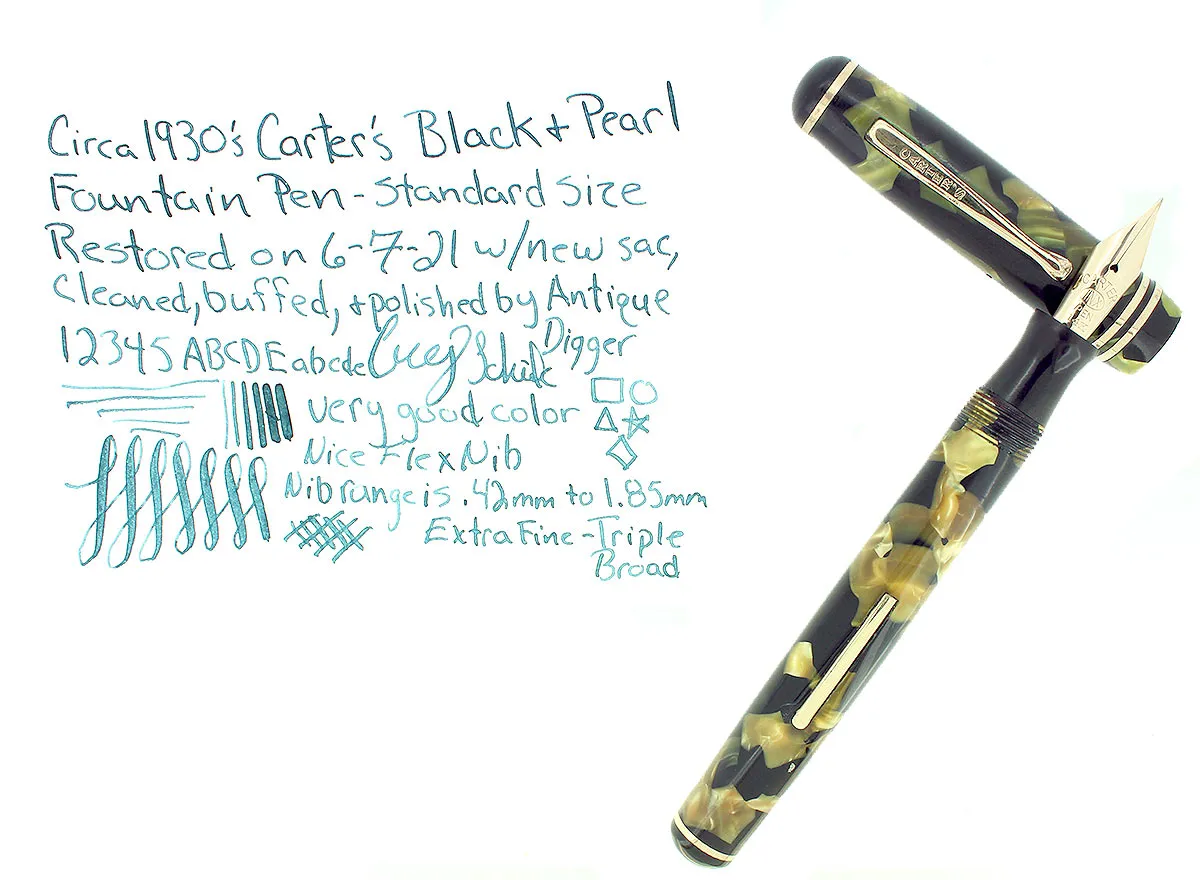 Circa 1930's Carter's Black + Pearl
Fountain Pen - Standard Size
Restored on 6-7-21 w/new sac,
Cleaned, buffed, + polished by Antique
Digger
12345 ABCDE abcde Greg
very good color
Nice Flex Nib
Nib range is .42mm to 1.85mm
Extra Fine - Triple
Broad
CARTER'S
CARTER